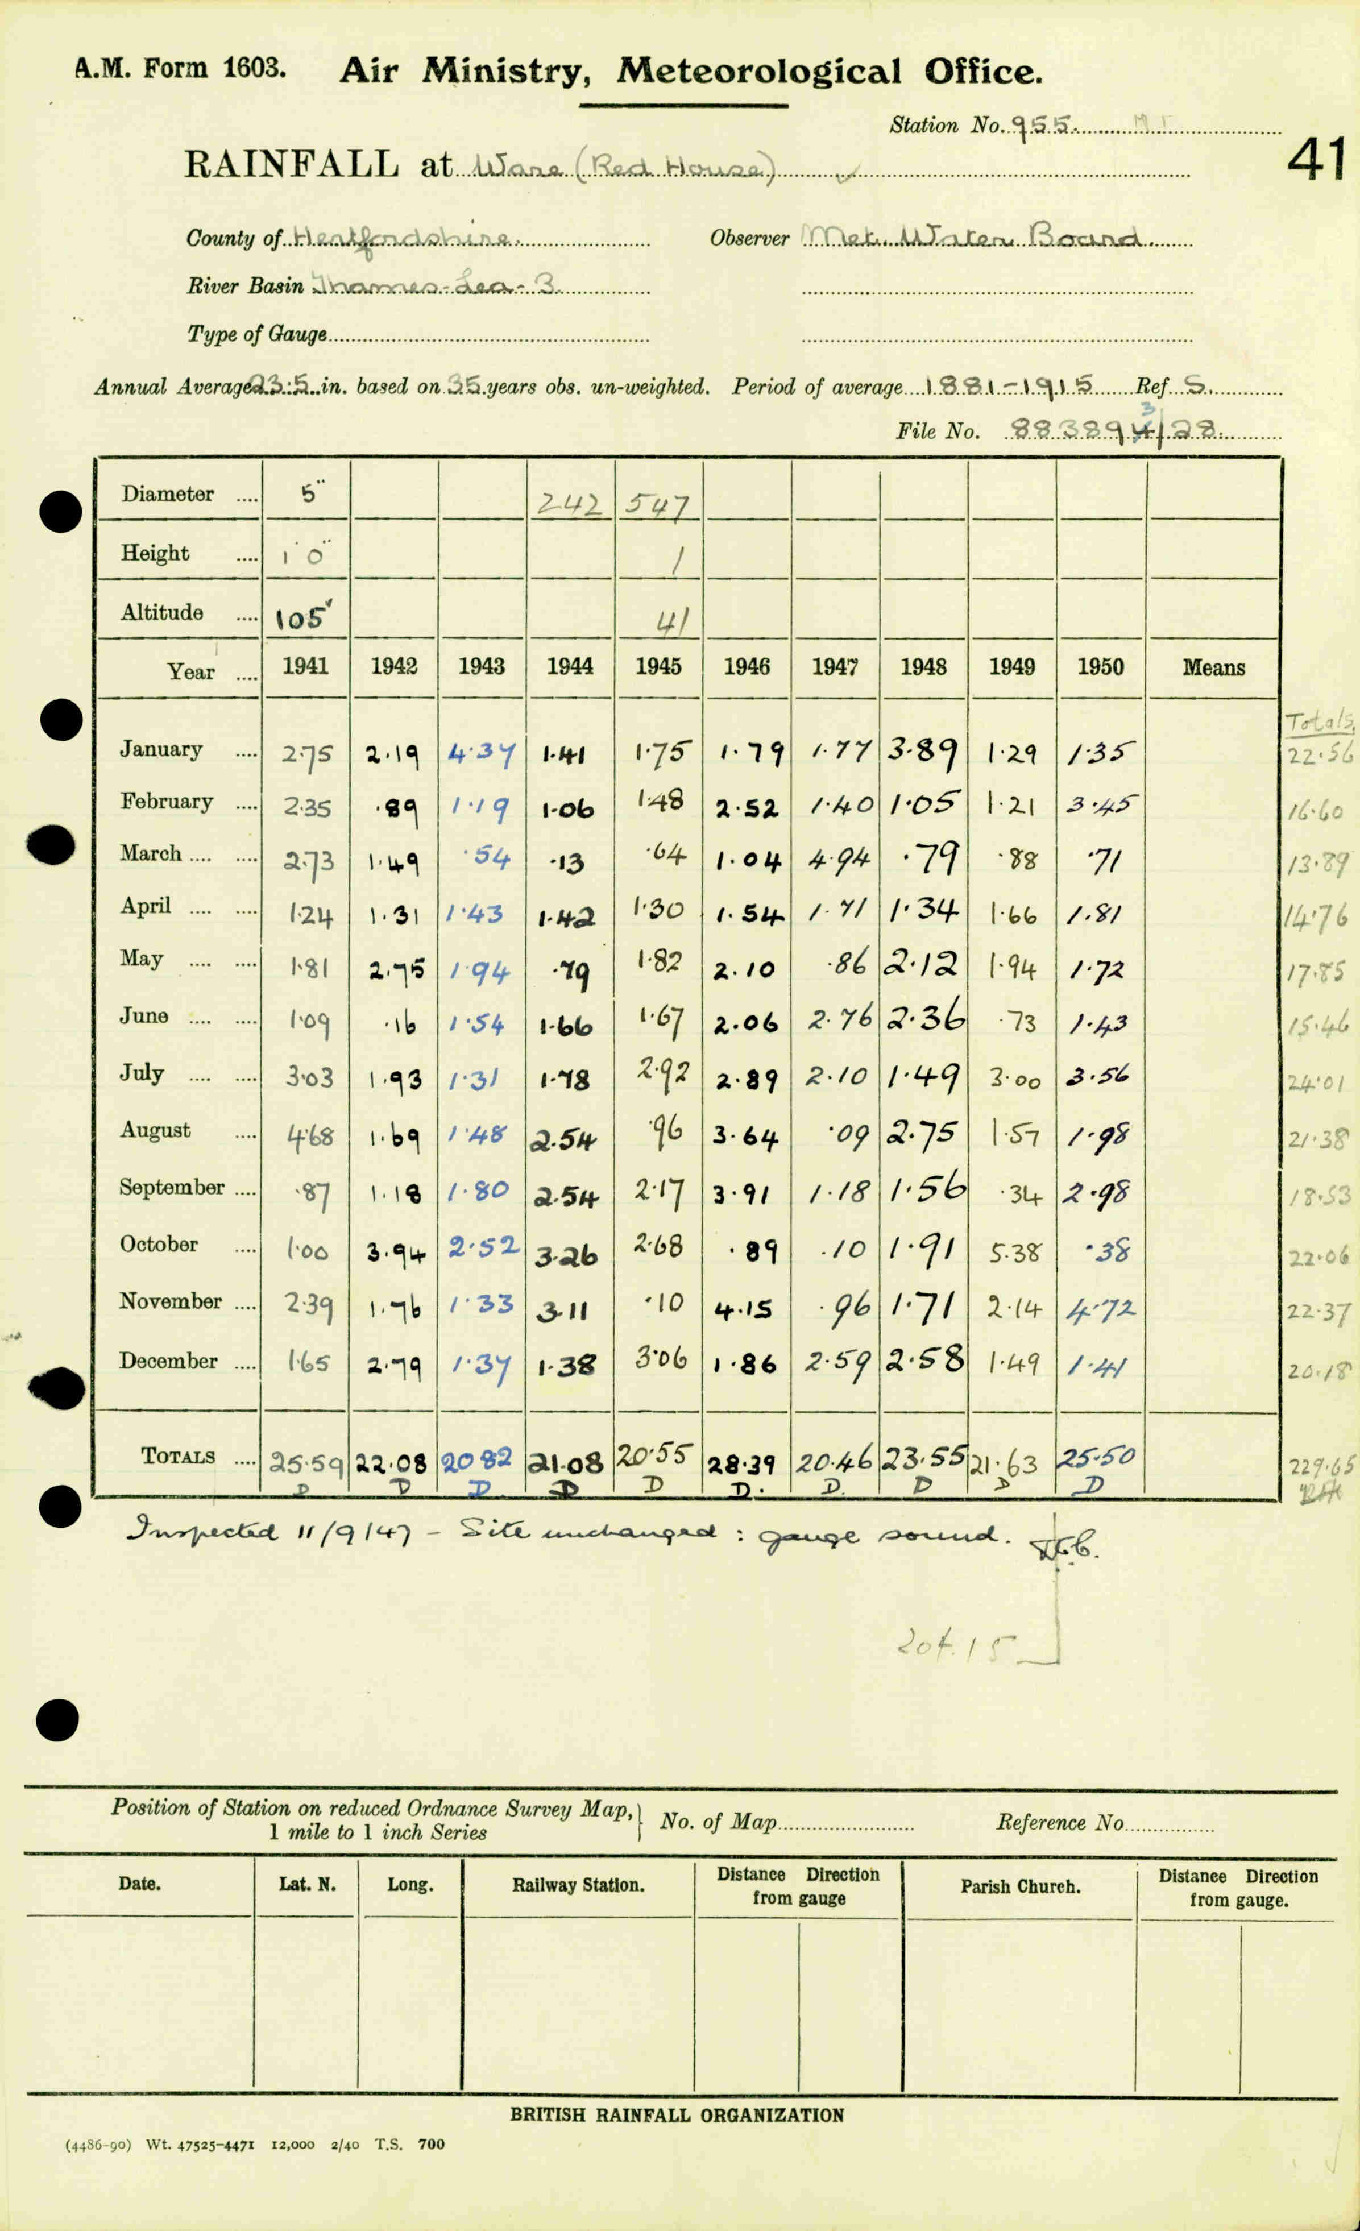 A.M. Form 1603. Air Ministry, Meteorological Office.
Station No. 955.
41
RAINFALL at Ware (Red House) ✓
County of Hertfordshire. Observer Met. Water Board.
River Basin Thames-Lea-3.
Type of Gauge
Annual Average 23.5 in. based on 35 years obs. un-weighted. Period of average 1881-1915 Ref S.
3
File No. 883894/28
Diameter .... 5" 242 547
Height .... 1' 0" 1
Altitude .... 105' 41
Year .... 1941 1942 1943 1944 1945 1946 1947 1948 1949 1950 Means
Totals
January .... 2.75 2.19 4.37 1.41 1.75 1.79 1.77 3.89 1.29 1.35 22.56
February .... 2.35 .89 1.19 1.06 1.48 2.52 1.40 1.05 1.21 3.45 16.60
March .... .... 2.73 1.49 .54 .13 .64 1.04 4.94 .79 .88 .71 13.89
April .... .... 1.24 1.31 1.43 1.42 1.30 1.54 1.71 1.34 1.66 1.81 14.76
May .... .... 1.81 2.75 1.94 .79 1.82 2.10 .86 2.12 1.94 1.72 17.85
June .... .... 1.09 .16 1.54 1.66 1.67 2.06 2.76 2.36 .73 1.43 15.46
July .... .... 3.03 1.93 1.31 1.78 2.92 2.89 2.10 1.49 3.00 3.56 24.01
August .... 4.68 1.69 1.48 2.54 .96 3.64 .09 2.75 1.57 1.98 21.38
September .... .87 1.18 1.80 2.54 2.17 3.91 1.18 1.56 .34 2.98 18.53
October .... 1.00 3.94 2.52 3.26 2.68 .89 .10 1.91 5.38 .38 22.06
November .... 2.39 1.76 1.33 3.11 .10 4.15 .96 1.71 2.14 4.72 22.37
December .... 1.65 2.79 1.37 1.38 3.06 1.86 2.59 2.58 1.49 1.41 20.18
TOTALS .... 25.59 22.08 20.82 21.08 20.55 28.39 20.46 23.55 21.63 25.50 229.65
D D D D D D. D. D D D
Inspected 11/9/47 - Site unchanged : gauge sound.
204.15
Position of Station on reduced Ordnance Survey Map, } No. of Map Reference No.
1 mile to 1 inch Series
Date. Lat. N. Long. Railway Station. Distance Direction from gauge Parish Church. Distance Direction from gauge.
BRITISH RAINFALL ORGANIZATION
(4486-90) Wt. 47525-4471 12,000 2/40 T.S. 700